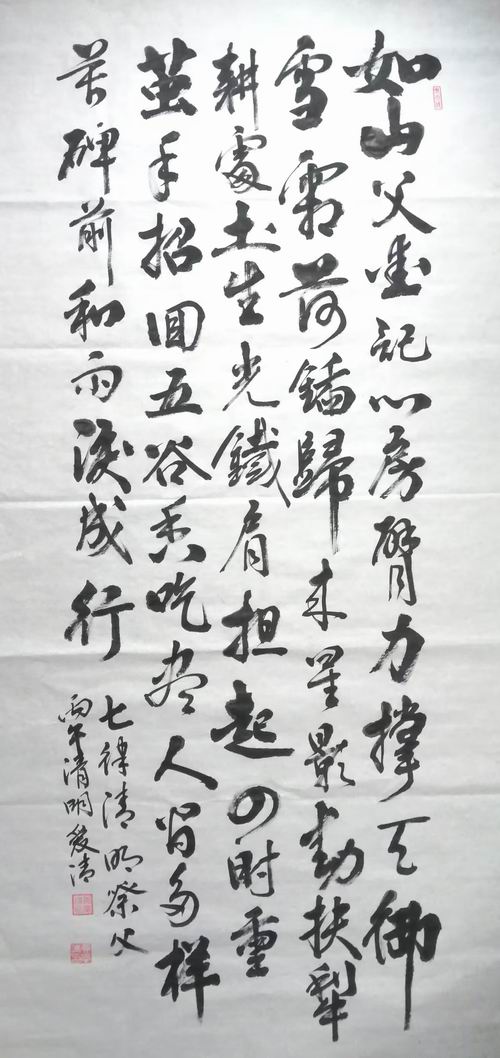 如山父爱記心房臂力撑天御
雪霜荷鍤歸来星影動扶犁
耕處土生光鐵肩担起四时重
茧手招回五谷香吃尽人间多样
苦碑前和雨淚成行
七律清明祭父
丙午清明發清